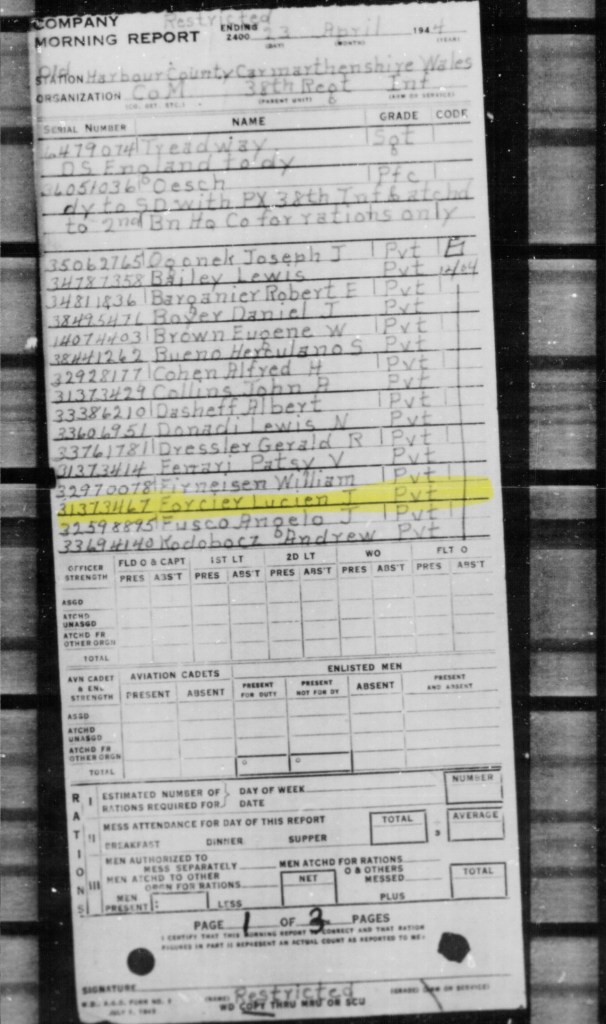 COMPANY Restricted
MORNING REPORT ENDING 2400 23 April 1944
(DAY) (MONTH) (YEAR)
STATION Harbour County Carmarthenshire Wales
ORGANIZATION Co M 38th Regt Inf
(CO. DET. ETC.) (PARENT UNIT) (ARM OR SERVICE)
SERIAL NUMBER NAME GRADE CODE
6479074 Treadway Sgt
DS England to dy
36051036 Oesch Pfc
dy to SD with PX 38th Inf & atchd
to 2nd Bn Hq Co for rations only
35062765 Ogonek Joseph J Pvt E
34787358 Bailey Lewis Pvt
34811836 Barganier Robert E Pvt
38495471 Boyer Daniel J Pvt
14074403 Brown Eugene W Pvt
38441262 Bueno Herculano S Pvt
32928177 Cohen Alfred H Pvt
31373429 Collins John A Pvt
33386210 Dasheff Albert Pvt
33606951 Donadi Lewis N Pvt
33761781 Dressler Gerald R Pvt
31373414 Ferrari Patsy V Pvt
32970078 Firneisen William Pvt
31373467 Forcier Lucien J Pvt
32598895 Fusco Angelo J Pvt
33694140 Kodobocz Andrew Pvt
OFFICER STRENGTH FLD O & CAPT 1ST LT 2D LT WO FLT O
PRES ABS'T PRES ABS'T PRES ABS'T PRES ABS'T PRES ABS'T
ASGD
ATCHD UNASGD
ATCHD FR OTHER ORGN
TOTAL
AVN CADET & ENL STRENGTH AVIATION CADETS ENLISTED MEN
PRESENT ABSENT PRESENT FOR DUTY PRESENT NOT FOR DY ABSENT PRESENT AND ABSENT
ASGD
ATCHD UNASGD
ATCHD FR OTHER ORGN
TOTAL
RATIONS
I ESTIMATED NUMBER OF } DAY OF WEEK NUMBER
RATIONS REQUIRED FOR } DATE
II MESS ATTENDANCE FOR DAY OF THIS REPORT TOTAL AVERAGE
BREAKFAST DINNER SUPPER 3
III MEN AUTHORIZED TO MESS SEPARATELY MEN ATCHD FOR RATIONS
MEN ATCHD TO OTHER ORGN FOR RATIONS NET O & OTHERS MESSED TOTAL
MEN PRESENT: LESS PLUS
PAGE 1 OF 3 PAGES
I CERTIFY THAT THIS MORNING REPORT IS CORRECT AND THAT RATION
FIGURES IN PART III REPRESENT AN ACTUAL COUNT AS REPORTED TO ME:
SIGNATURE
W.D., A.G.O. FORM NO. 1 (NAME) Restricted (GRADE) (ARM OR SERVICE)
JULY 1, 1943 WD COPY THRU MRU OR SCU